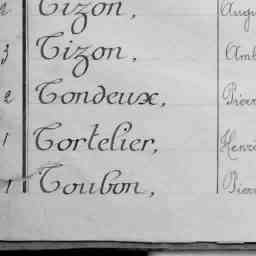 2 Tizon, Augu
3 Tizon, Amb
2 Tondeux, Pierr
1 Tortelier, Henri
1 Toubon, Pierr